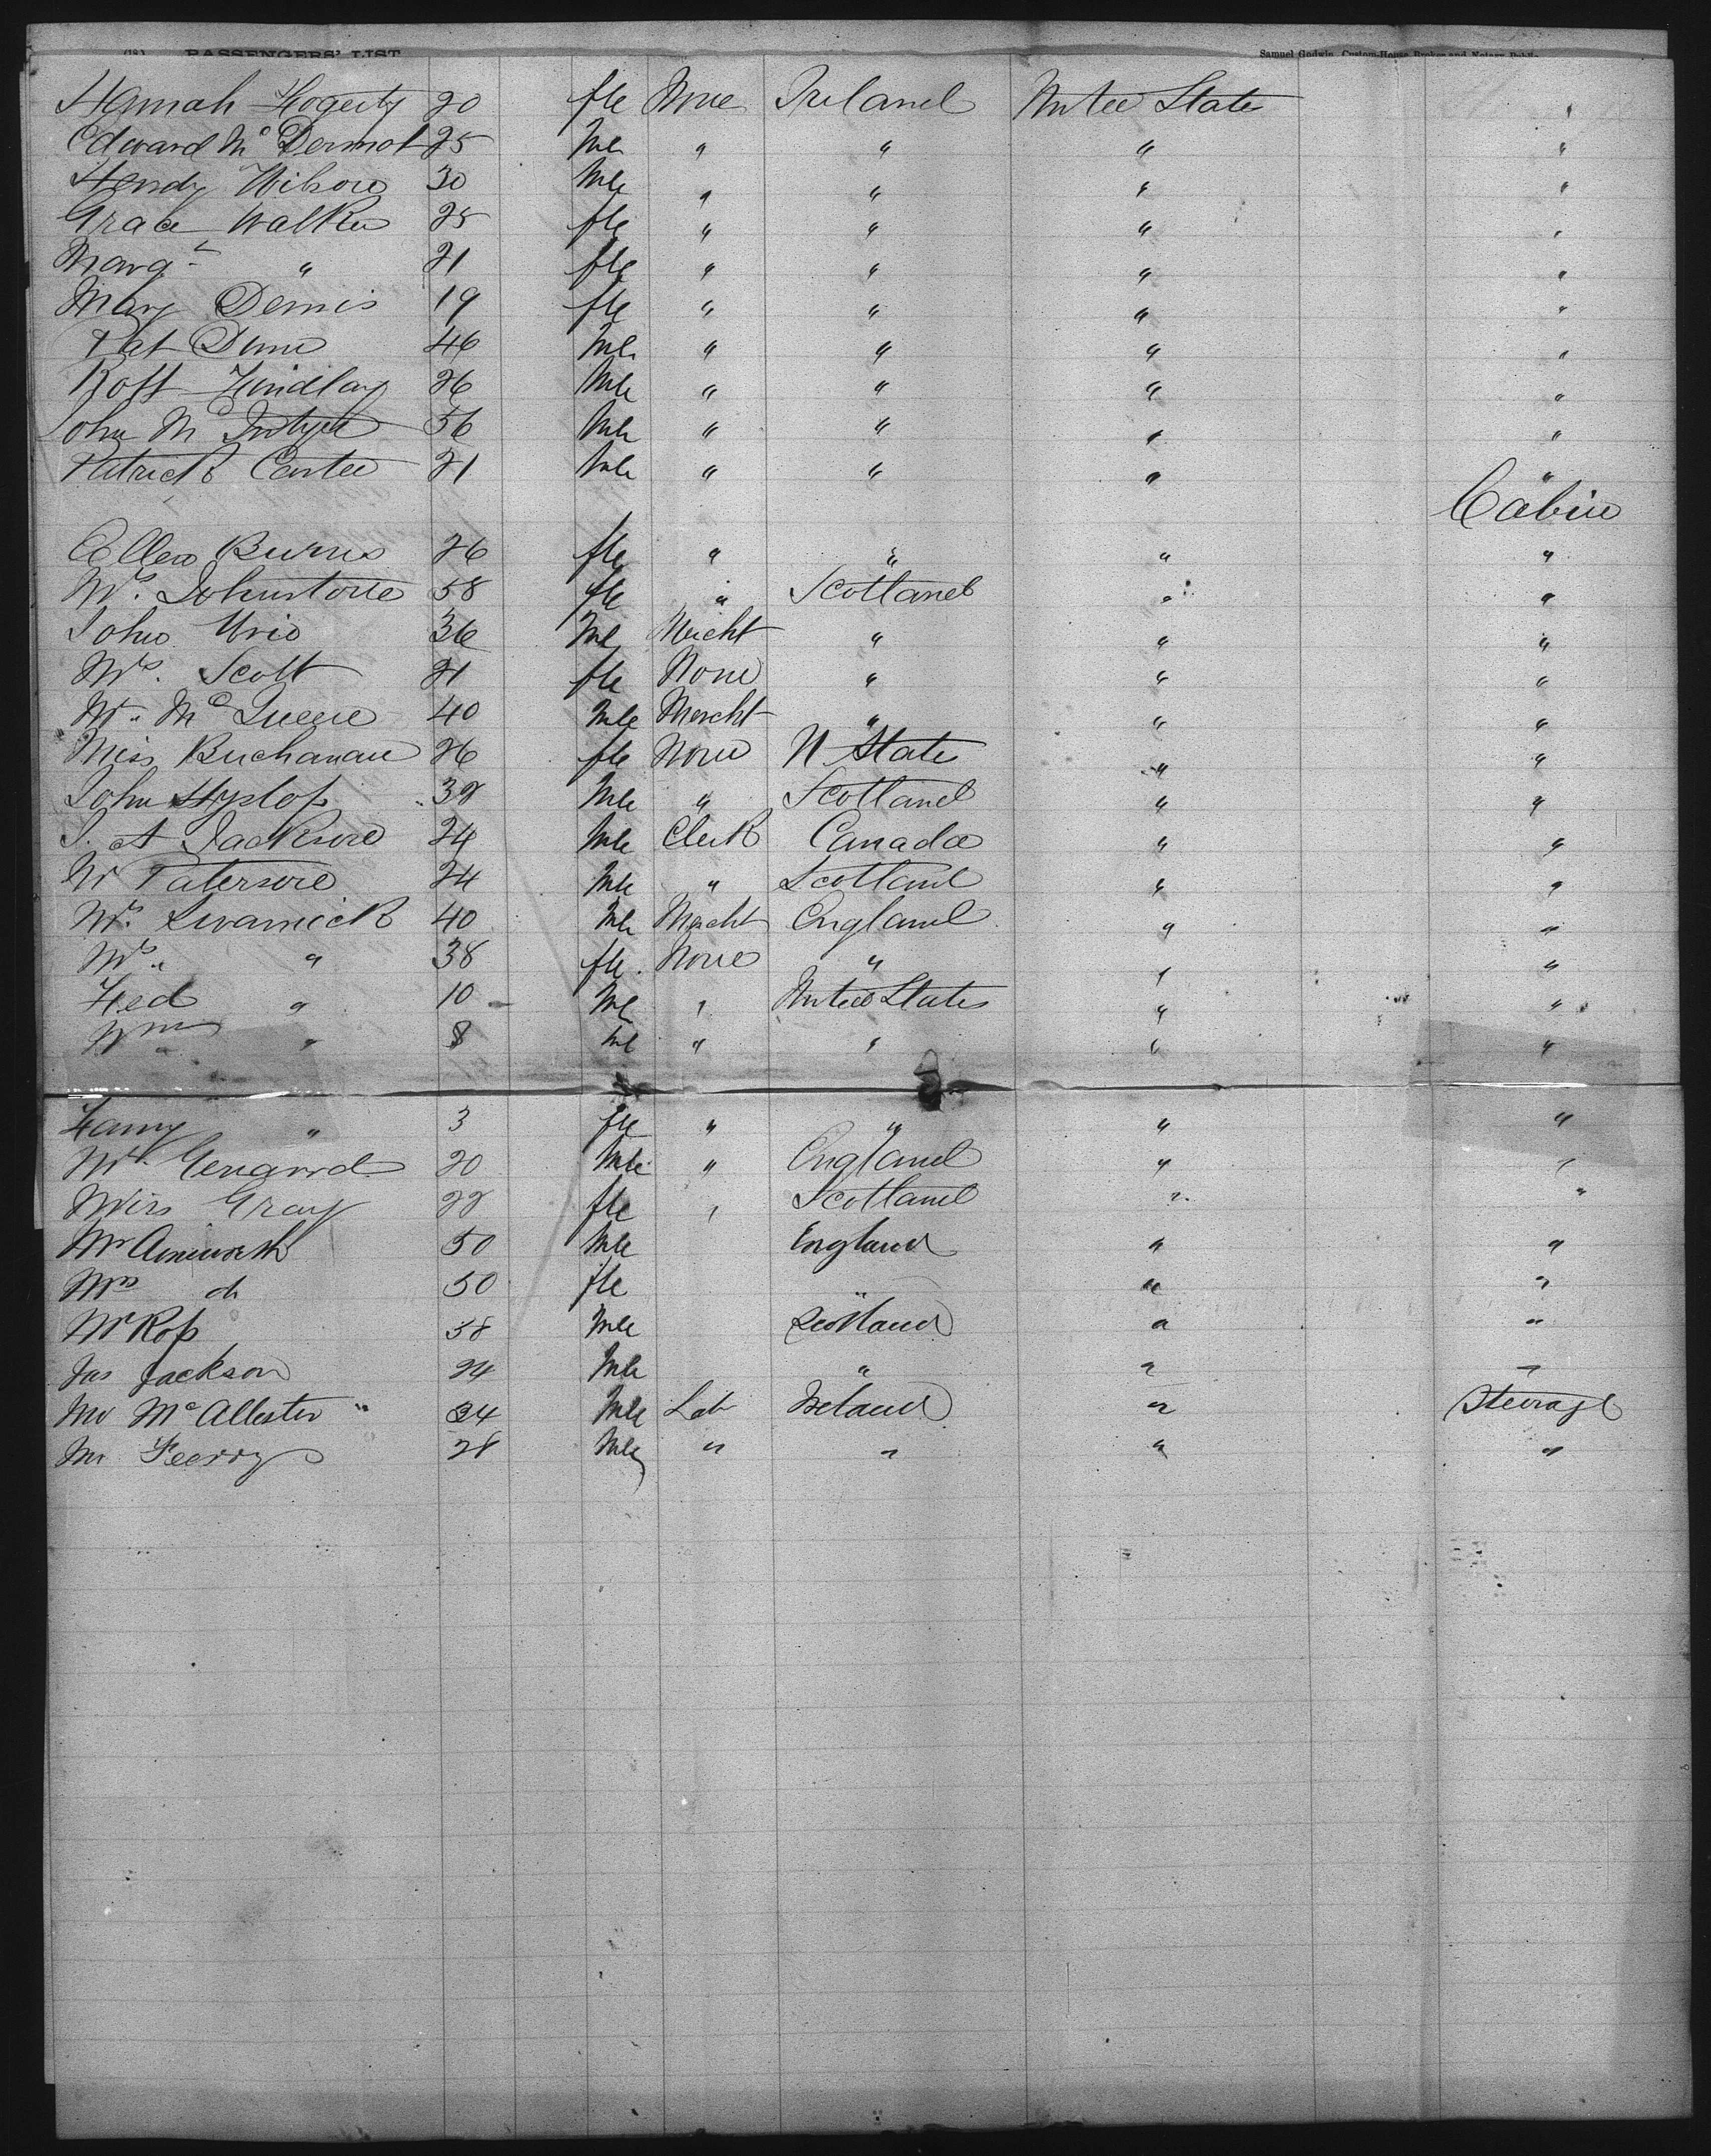 (18) PASSENGERS' LIST. Samuel Godwin, Custom-House Broker and Notary Public
Hannah Hogerty 20 fle None Ireland United States "
Edward McDermot 25 Mle " " " "
Hendy Wilson 30 Mle " " " "
Grace Walker 25 fle " " " "
Margt " 21 fle " " " "
Mary Dennis 19 fle " " " "
Pat Dunn 46 Mle " " " "
Robt Findlay 26 Mle " " " "
John McIntyre 56 Mle " " " "
Patrick Carter 21 Mle " " " "
Cabin
Ellen Burns 26 fle " " " "
Mrs. Johnstone 58 fle " Scotland " "
John Urie 36 Mle Mercht " " "
Mrs. Scott 21 fle None " " "
Mr. McQueen 40 Mle Mercht " " "
Miss Buchanan 26 fle None U States " "
John Hyslop 38 Mle " Scotland " "
J. A Jackson 24 Mle Clerk Canada " "
Mr Paterson 24 Mle " Scotland " "
Mr. Swanick 40 Mle Mercht England " "
Mrs. " 38 fle None " " "
Fred " 10 Mle " United States " "
Wm " 8 Mle " " " "
Fanny " 3 fle " " " "
Mr. 20 Mle " England " "
Miss Gray 22 fle " Scotland " "
Mr Ainsworth 50 Mle England " "
Mrs do 50 fle " " "
Mr Ross 38 Mle Scotland " "
Jas Jackson 24 Mle " " "
Mr McAllester 24 Mle Lab Ireland " Steerage
Mr Feerry 28 Mle " " " "